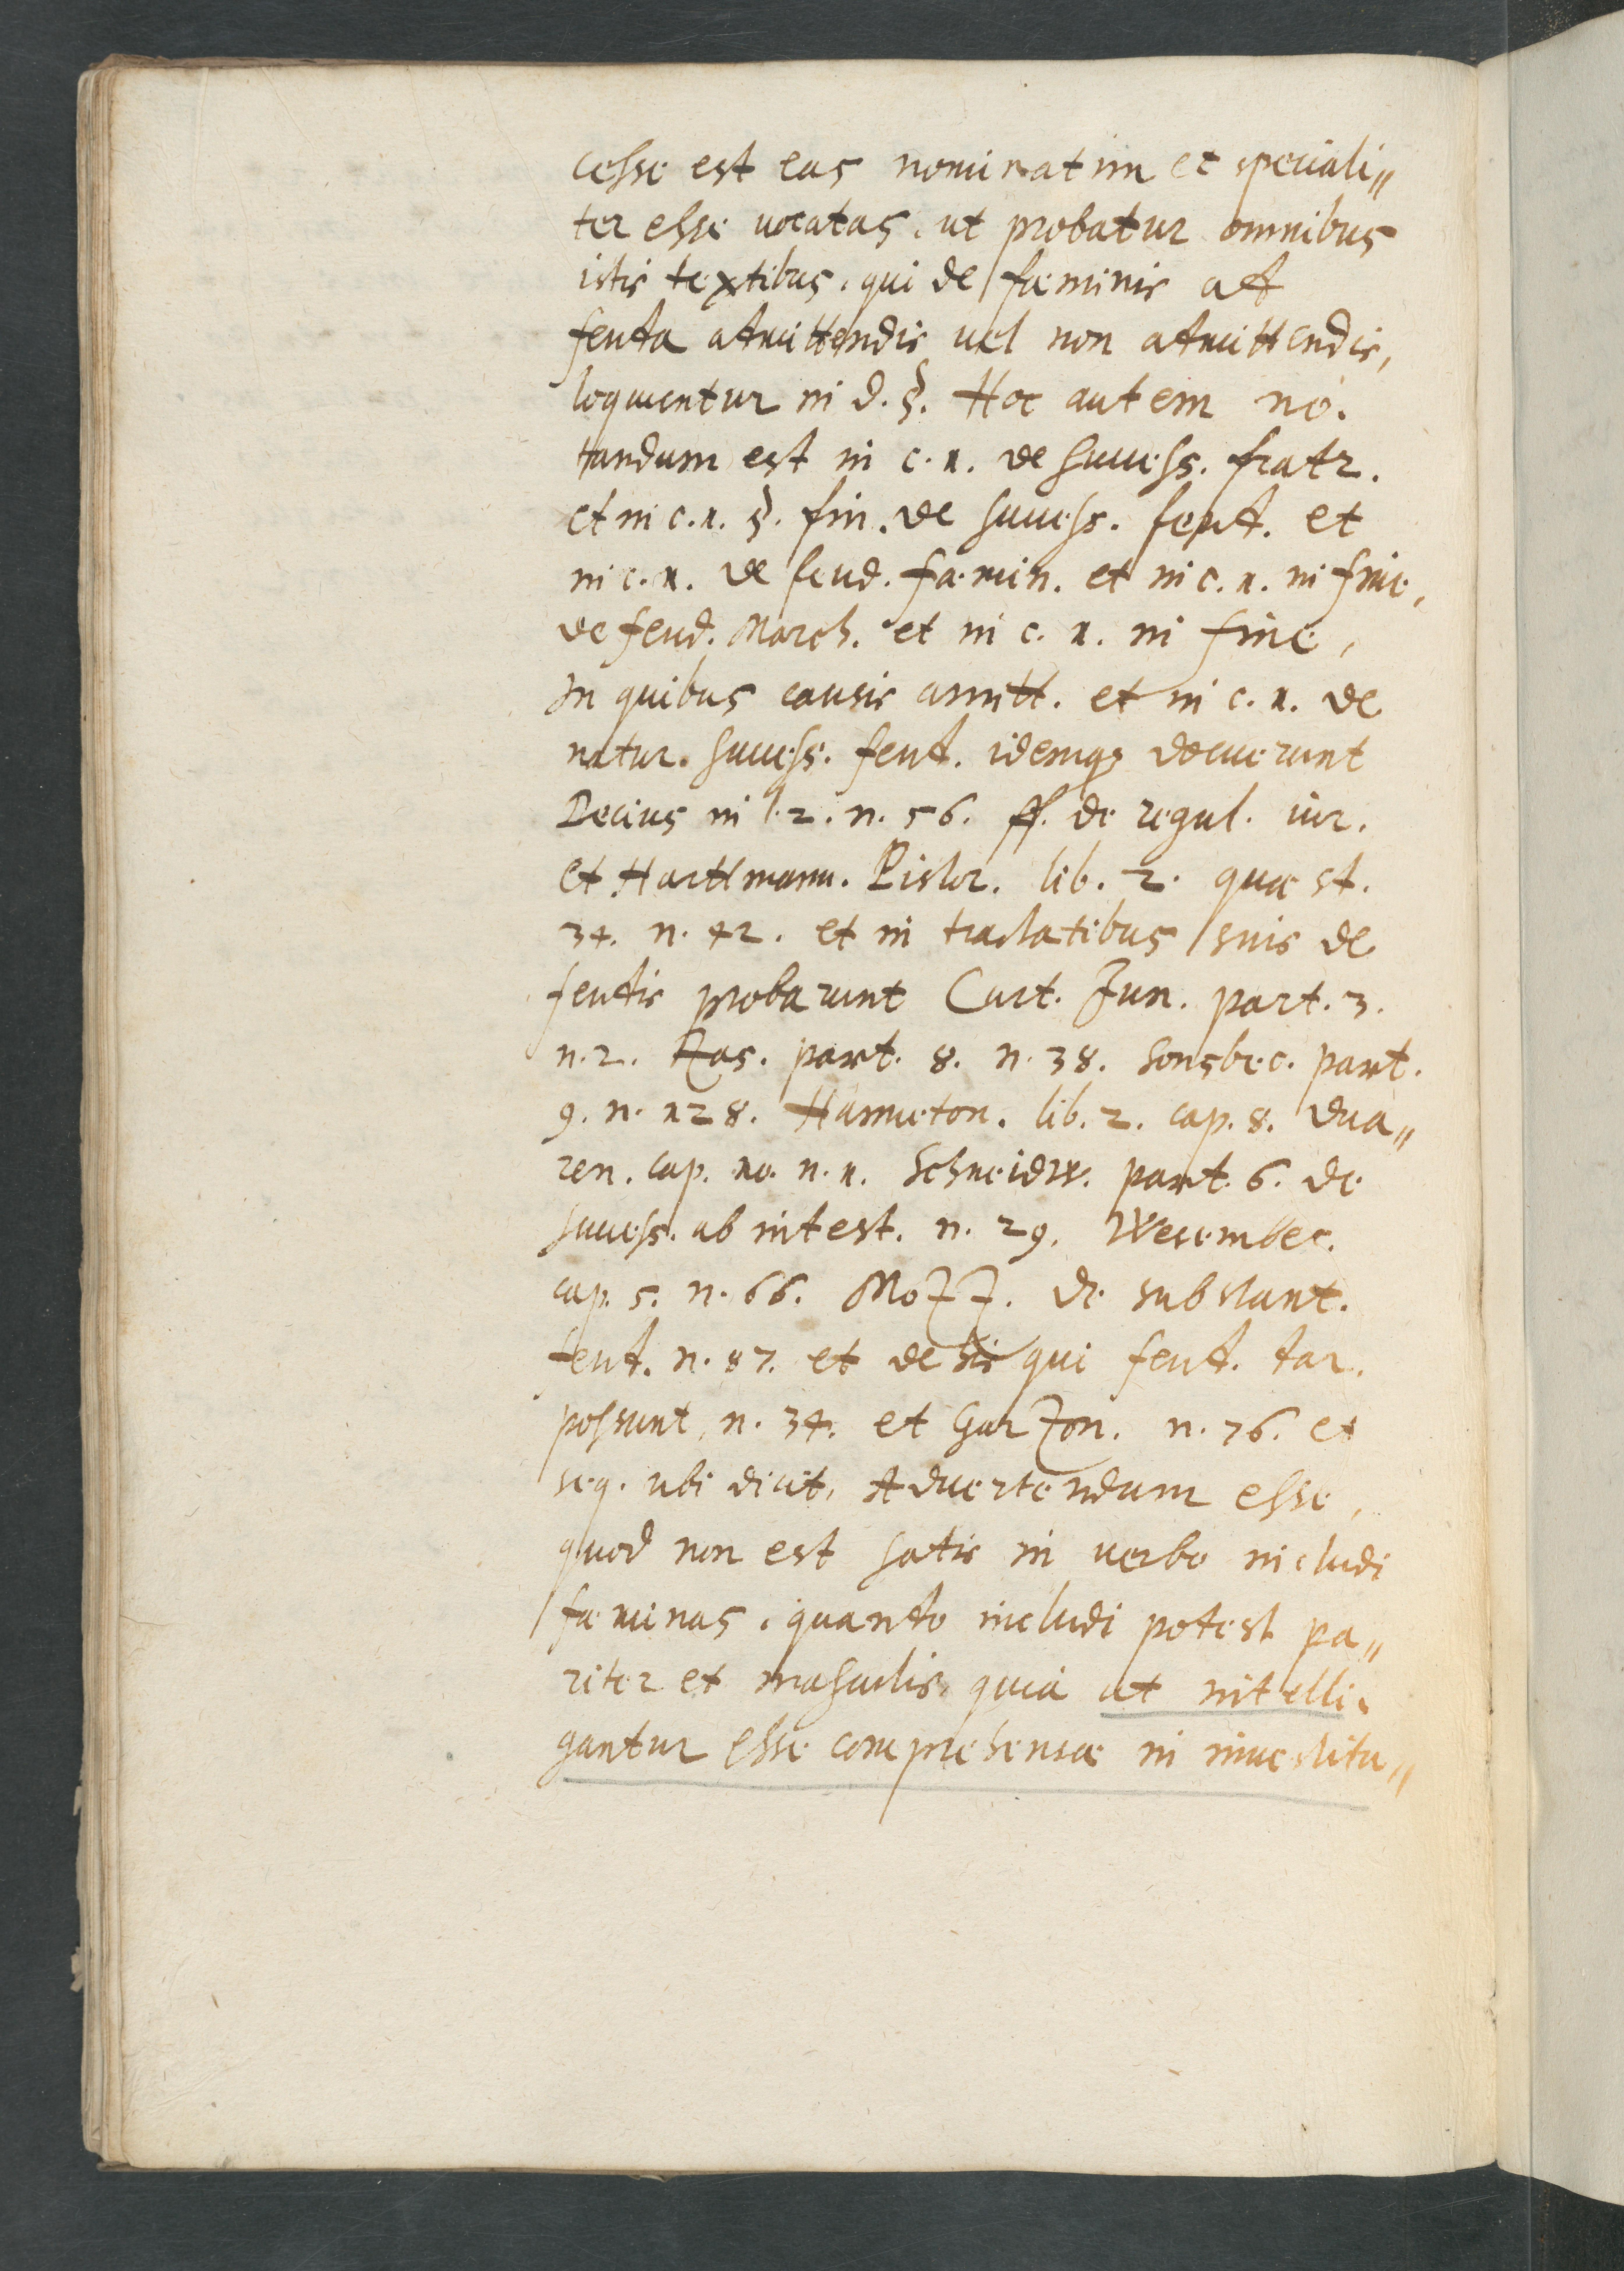 cesse est eas nominatim et speciali„
ter esse vocatas, ut probatur omnibus
istis textibus, qui de fœminis ad
feuda admittendis vel non admittendis,
loquuntur in d. §. Hoc autem no.
tandum est in c. 1. de success. fratr.
et in c. 1. §. fin. de success. feud. et
in c. 1. de feud. fœmin. et in c. 1. in fine,
de feud. March. et in c. 1. in fine,
In quibus causis amitt. et in c. 1. de
natur. success. feud. idemq; docuerunt
Decius in l. 2. n. 56. ff. de regul. iur.
et Harttmann. Pistor. lib. 2. quæst.
34. n. 42. et in tractatibus suis de
feudis probarunt Curt. Jun. part. 3.
n. 2. Zas. part. 8. n. 38. Sonsbec. part.
9. n. 128. Hanneton. lib. 2. cap. 8. Dua„
ren. cap. 10. n. 1. Schneidw. part. 6. de
success. ab intest. n. 29. Wesembec.
cap. 5. n. 66. Mozz. de substant.
feud. n. 87. et de his qui feud. dar.
possunt, n. 34. et Garzon. n. 76. et
seq. ubi dicit, Advertendum esse,
quod non est satis in verbo includi
fœminas, quando includi potest pa„
riter et masculis, quia ut intelli.
gantur esse comprehensæ in investitu„